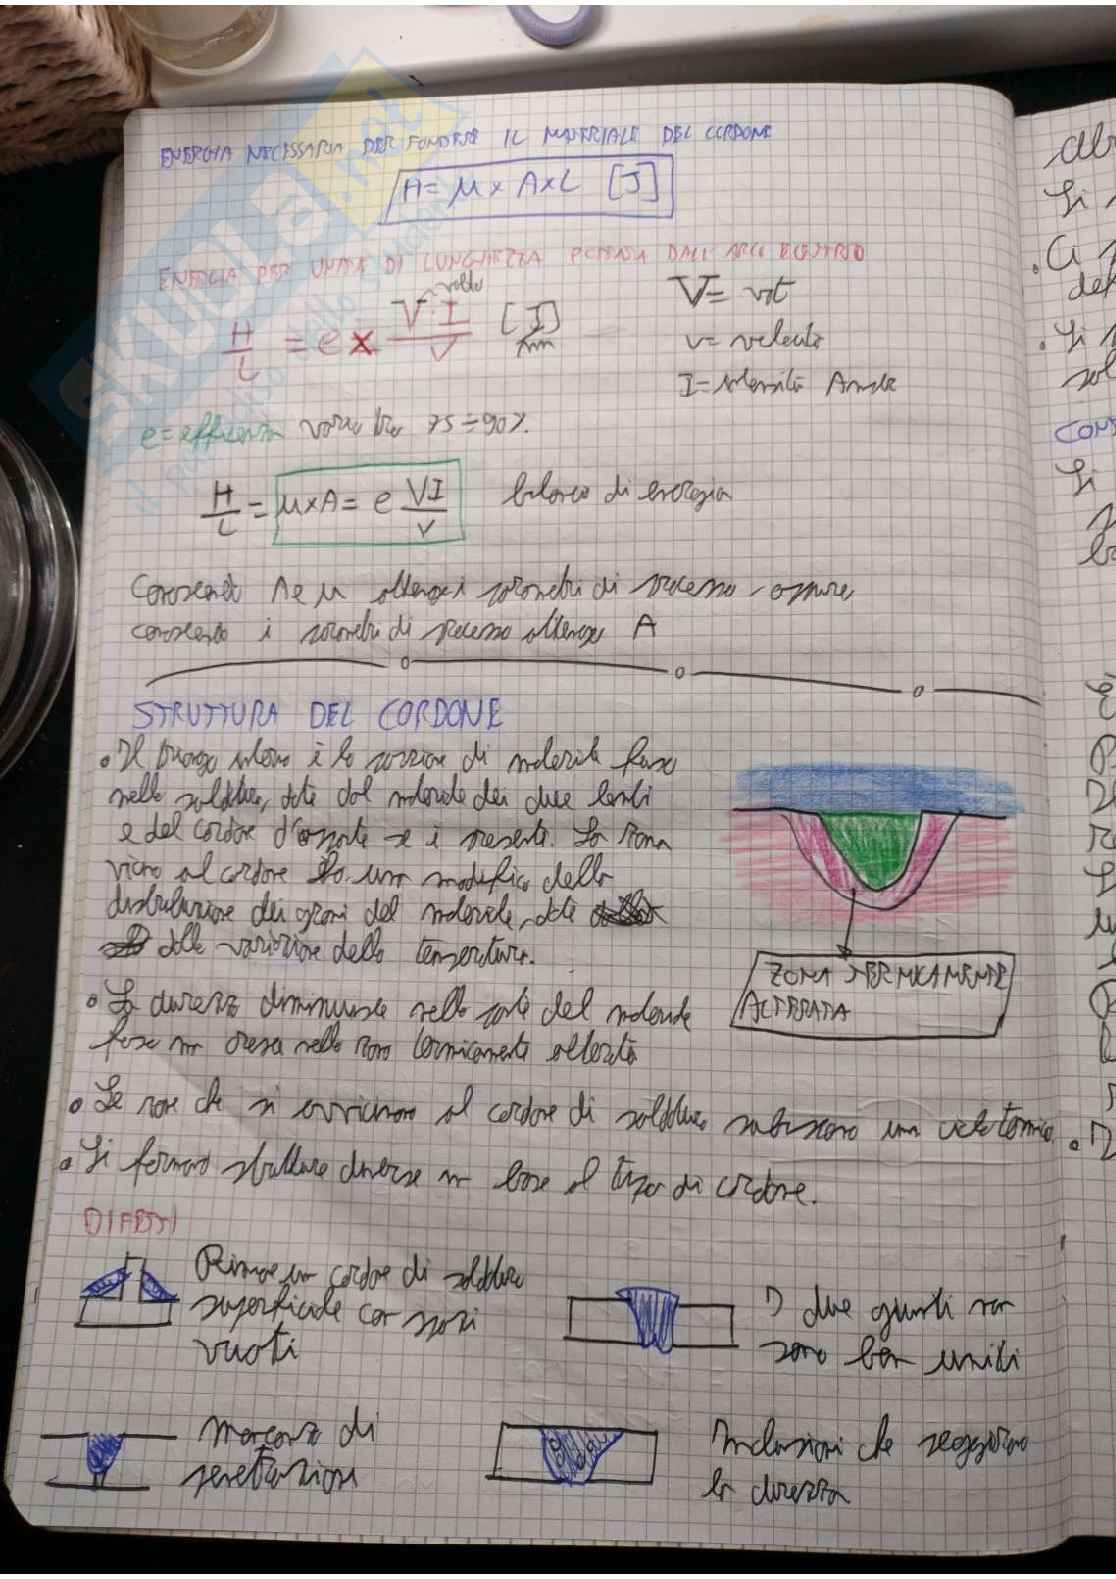 ENERGIA NECESSARIA PER FONDERE IL MATERIALE DEL CORDONE
H= μ x A x L [J]
ENERGIA PER UNITÀ DI LUNGHEZZA DALL'ARCO
H/L = e x V·I/v [J/mm]
V= volt
v= velocità
I= intensità
e= efficienza varia tra 75÷90%
H/L = μxA= e VI/v bilancio di energia
Conoscendo A e μ ottengo i parametri di processo, oppure
conoscendo i parametri di processo ottengo A
STRUTTURA DEL CORDONE
• Il è la porzione di materiale fuso
nella saldatura, data dal materiale dei due lembi
e del cordone d'apporto se è presente. La zona
vicino al cordone ha una modifica della
distribuzione dei grani del materiale, data
dalla variazione della temperatura.
ZONA TERMICAMENTE
ALTERATA
• La durezza diminuisce nella parte del materiale
fuso ma cresce nella zona termicamente alterata
• Le zone che si avvicinano al cordone di saldatura subiscono un ciclo termico
• Si formano strutture diverse in base al tipo di cordone.
DIFETTI
Rimane un cordone di saldatura
superficiale con spazi
vuoti
I due giunti non
sono ben uniti
mancanza di
penetrazione
Inclusioni che peggiorano
la durezza
SKUOLA.net